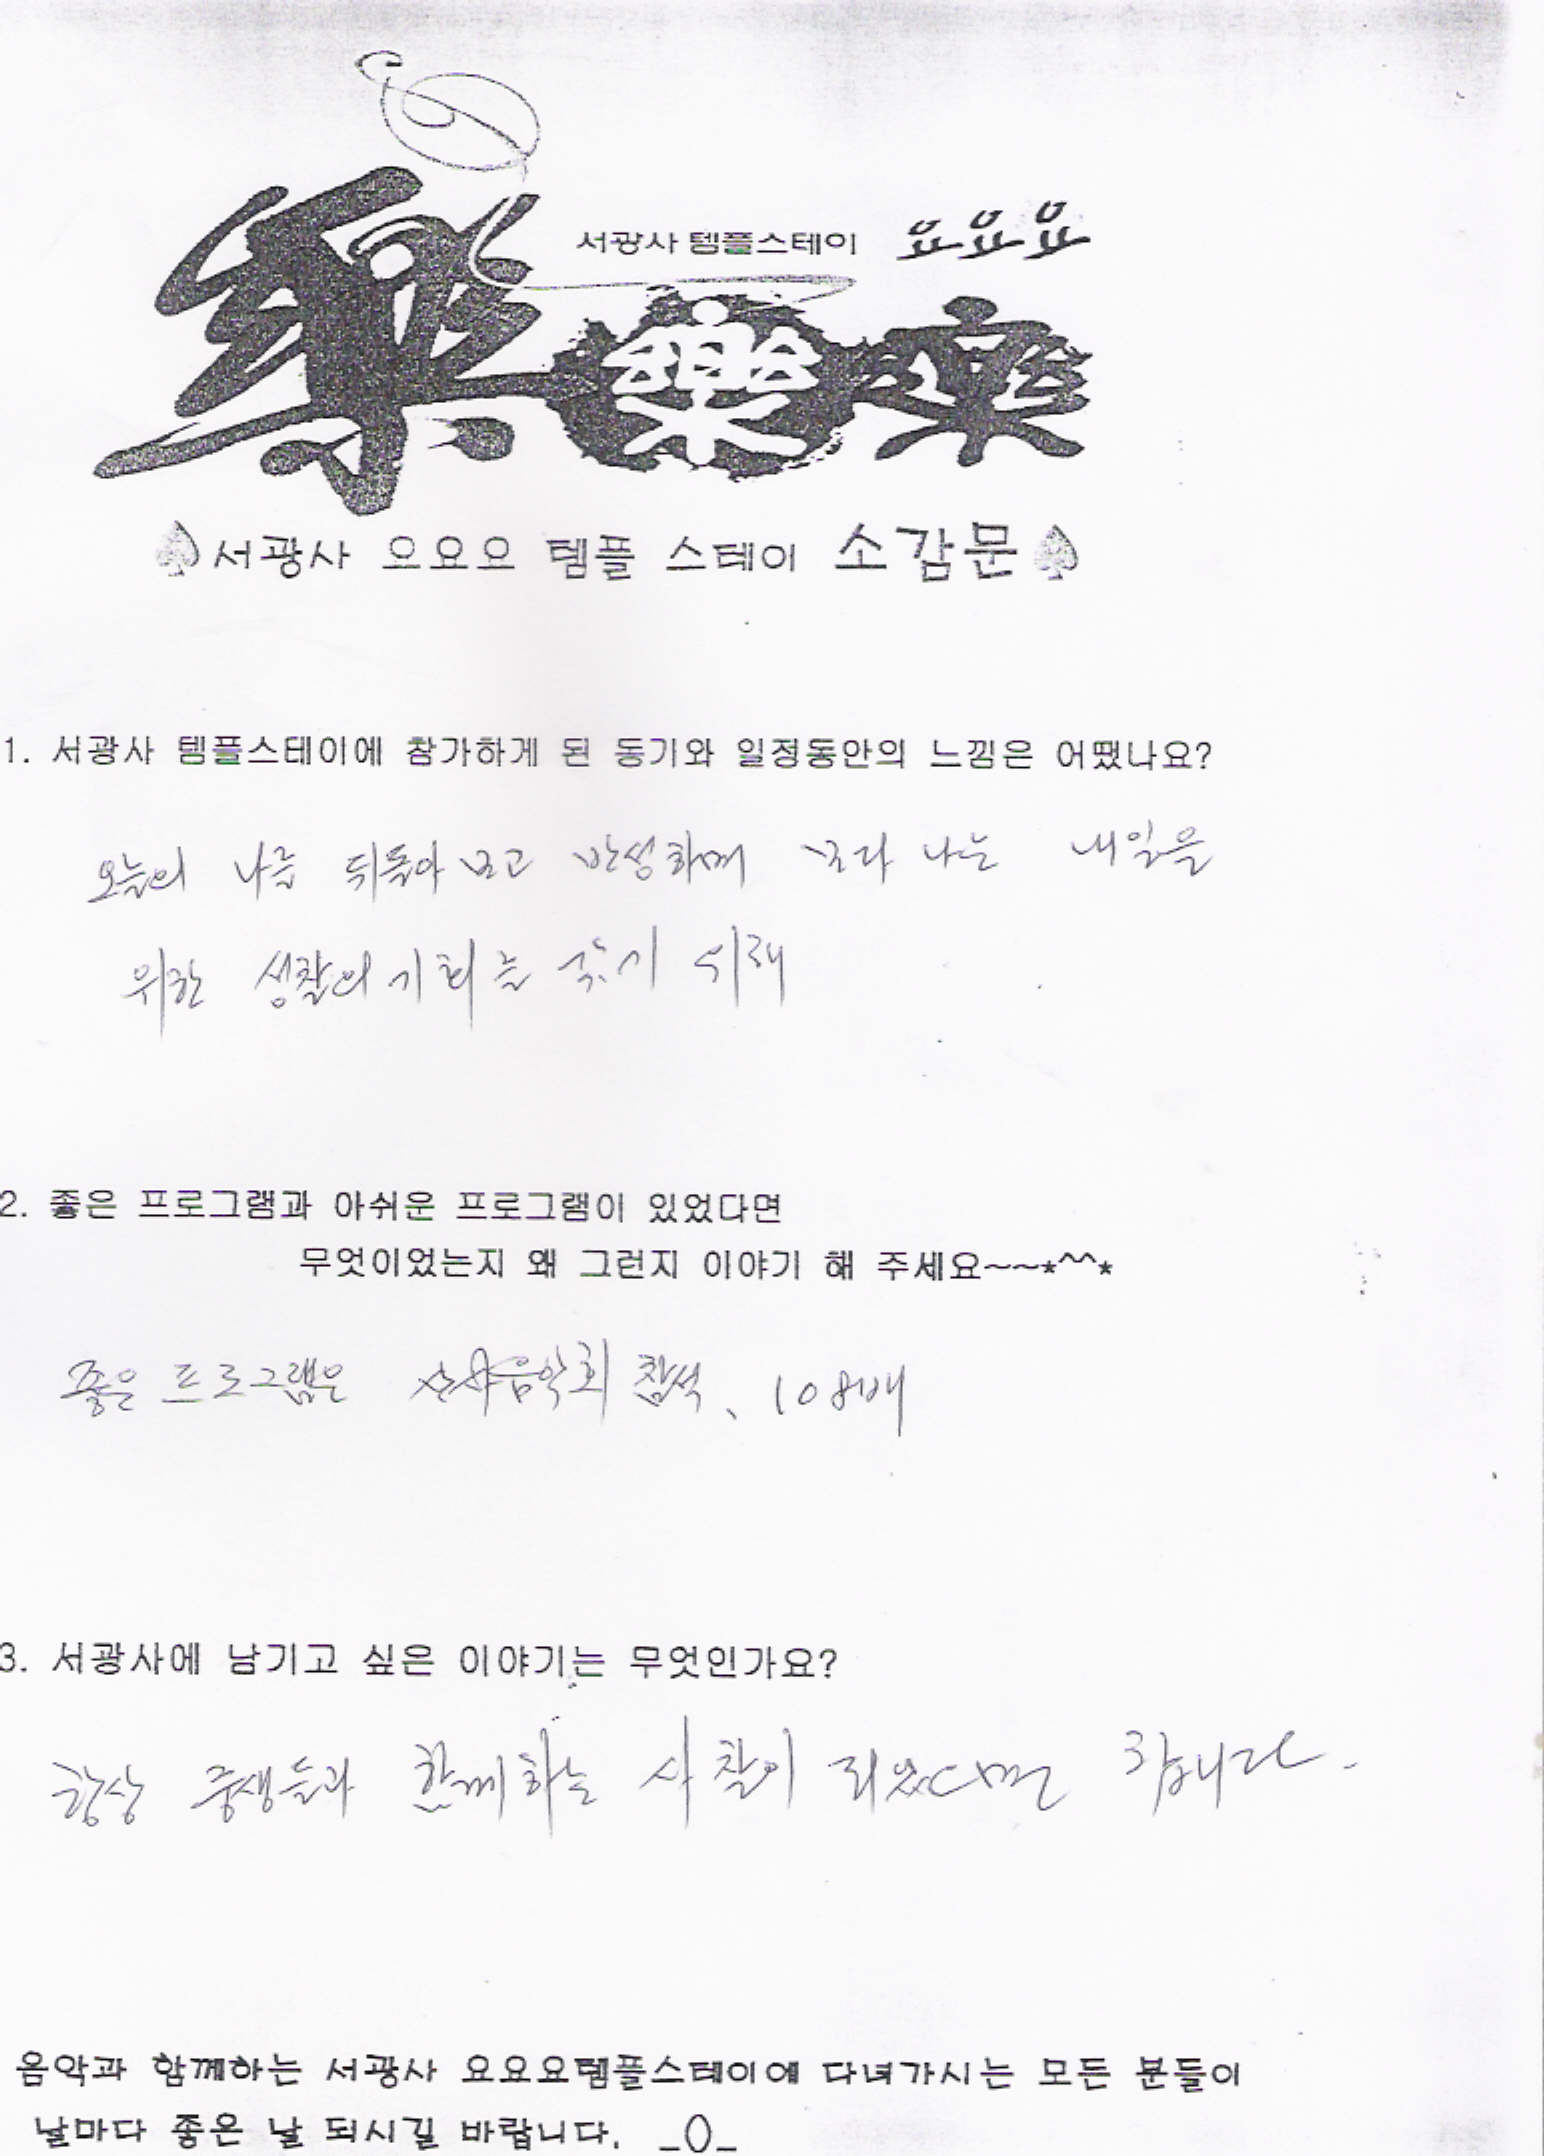 서광사 템플스테이 요요요
樂樂樂
서광사 요요요 템플 스테이 소감문
1. 서광사 템플스테이에 참가하게 된 동기와 일정동안의 느낌은 어땠나요?
오늘의 나를 뒤돌아 보고 반성하며 보다 나은 내일을
위한 성찰의 기회를 갖기 위해
2. 좋은 프로그램과 아쉬운 프로그램이 있었다면
무엇이었는지 왜 그런지 이야기 해 주세요~~*^^*
좋은 프로그램은 산사음악회 참석, 108배
3. 서광사에 남기고 싶은 이야기는 무엇인가요?
항상 중생들과 함께하는 사찰이 되었으면 합니다.
음악과 함께하는 서광사 요요요템플스테이에 다녀가시는 모든 분들이
날마다 좋은 날 되시길 바랍니다. _()_